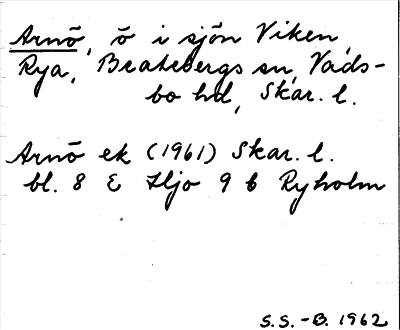 Arnö, ö i sjön Viken,
Rya, Beatebergs sn, Vads-
bo hd, Skar. l.
Arnö ek (1961) Skar. l.
bl. 8 E Hjo 9 b Ryholm
S.S.-B. 1962